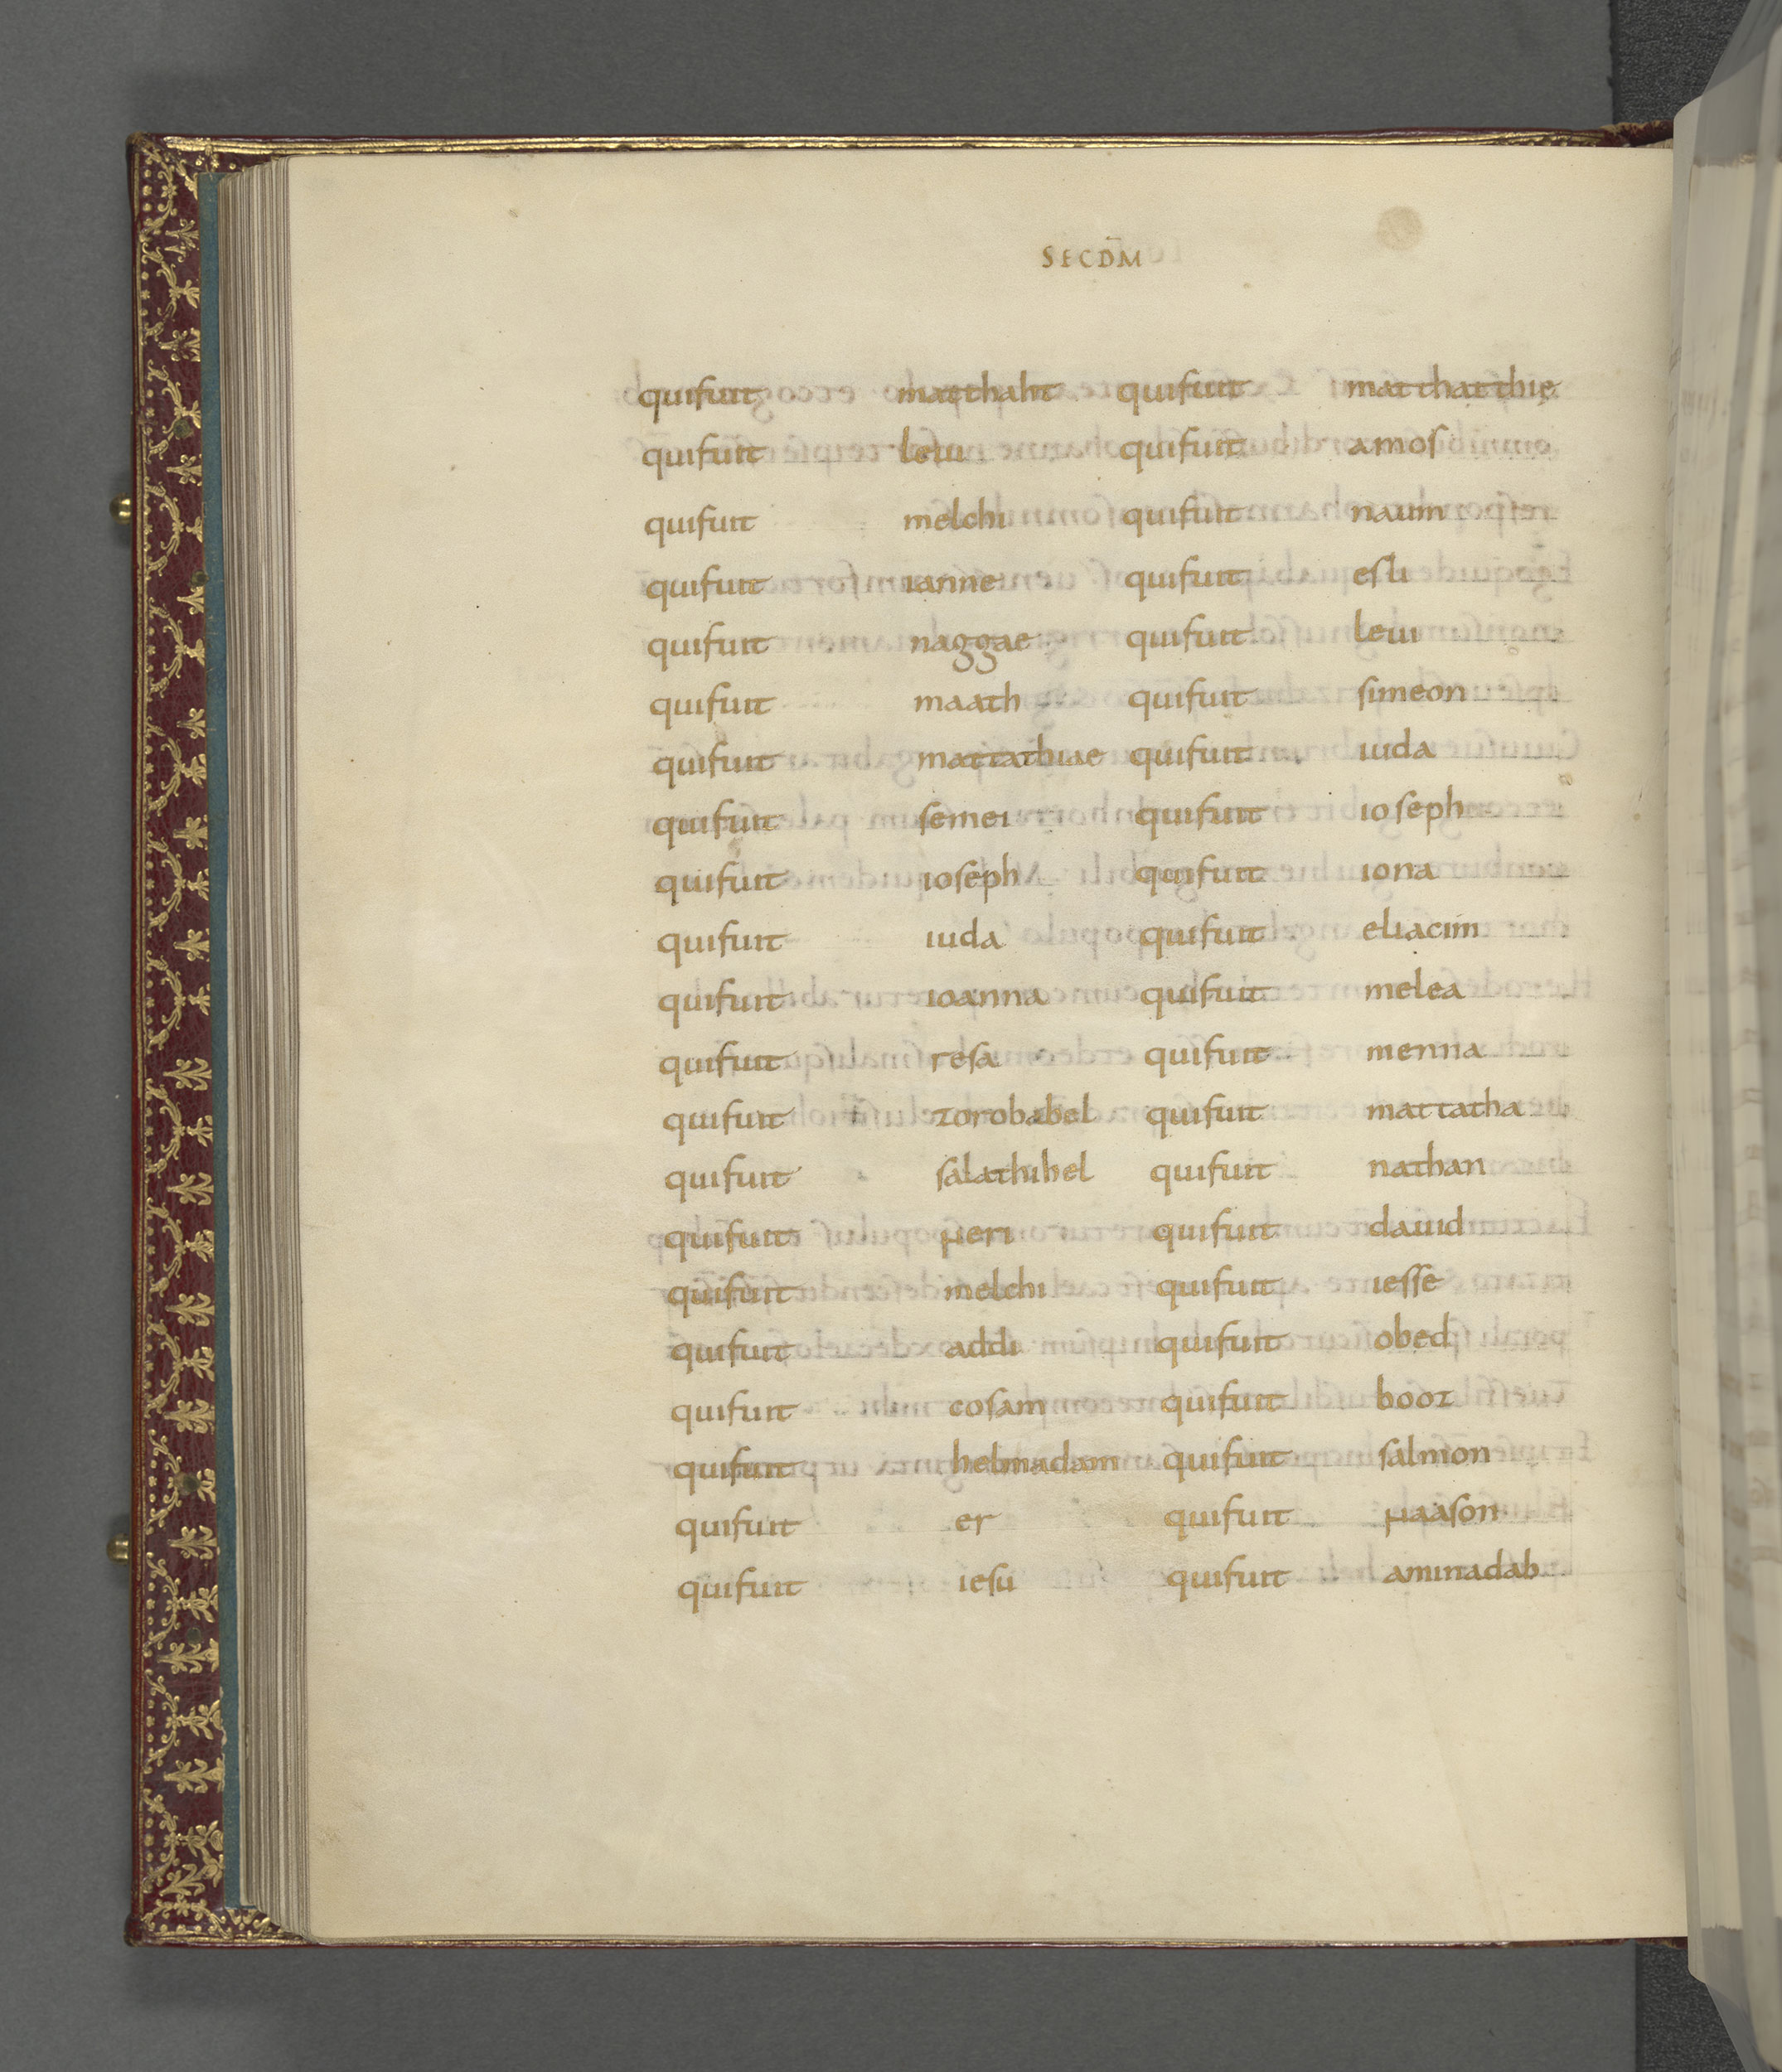 SECD̄M
quifuit matthaht quifuit matthatthię
quifuit leui quifuit amos
quifuit melchi quifuit naum
quifuit ianne quifuit esli
quifuit naggae quifuit leui
quifuit maath quifuit simeon
quifuit mattathiae quifuit iuda
quifuit semei quifuit ioseph
quifuit ioseph quifuit iona
quifuit iuda quifuit eliacim
quifuit ioanna quifuit melea
quifuit resa quifuit menna
quifuit zorobabel quifuit mattatha
quifuit salathihel quifuit nathan
quifuit neri quifuit dauid
quifuit melchi quifuit iesse
quifuit addi quifuit obed
quifuit cosam quifuit booz
quifuit helmadam quifuit salmon
quifuit er quifuit naason
quifuit iesu quifuit aminadab